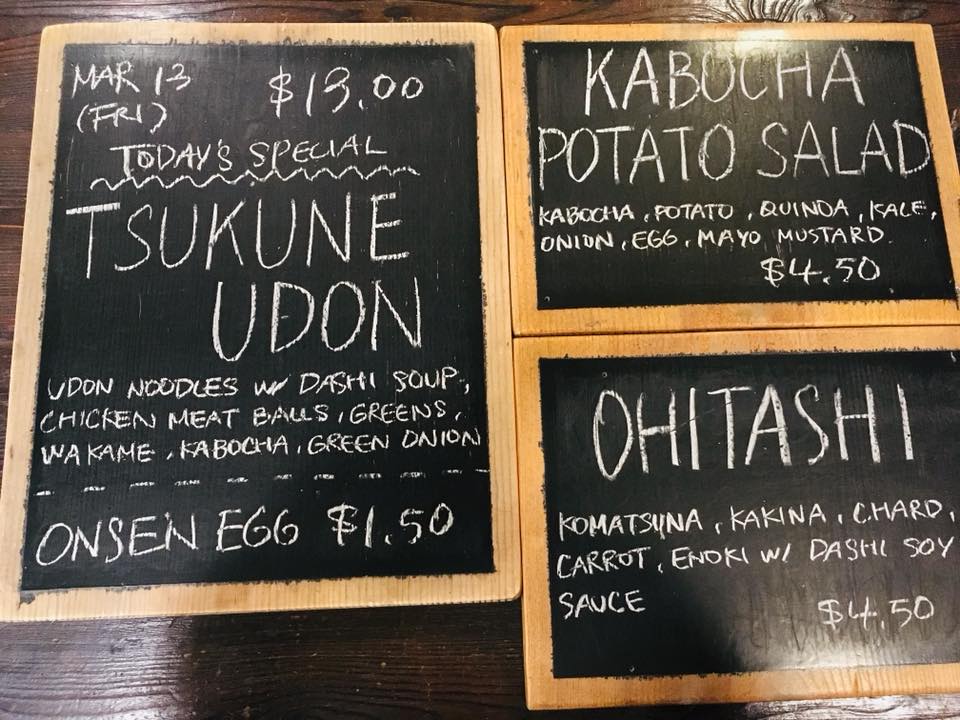 MAR 13 $13.00
(FRI)
TODAY'S SPECIAL
TSUKUNE
UDON
UDON NOODLES W/ DASHI SOUP,
CHICKEN MEAT BALLS, GREENS,
WAKAME, KABOCHA, GREEN ONION
ONSEN EGG $1.50
KABOCHA
POTATO SALAD
KABOCHA, POTATO, QUINOA, KALE,
ONION, EGG, MAYO MUSTARD
$4.50
OHITASHI
KOMATSUNA, KAKINA, CHARD,
CARROT, ENOKI W/ DASHI SOY
SAUCE
$4.50